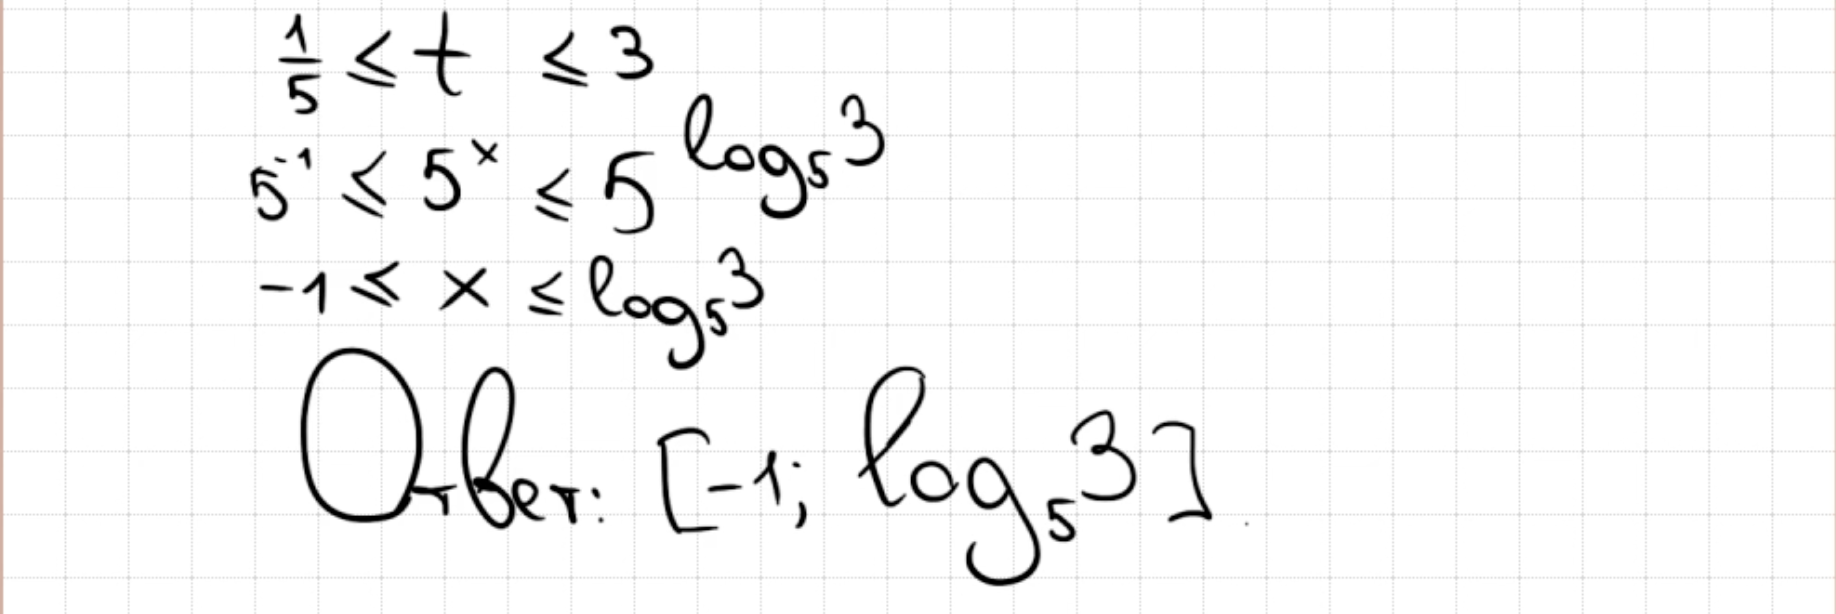 1/5 ⩽ t ⩽ 3
5⁻¹ ⩽ 5ˣ ⩽ 5^(log₅3)
-1 ⩽ x ⩽ log₅3
Ответ: [-1; log₅3]